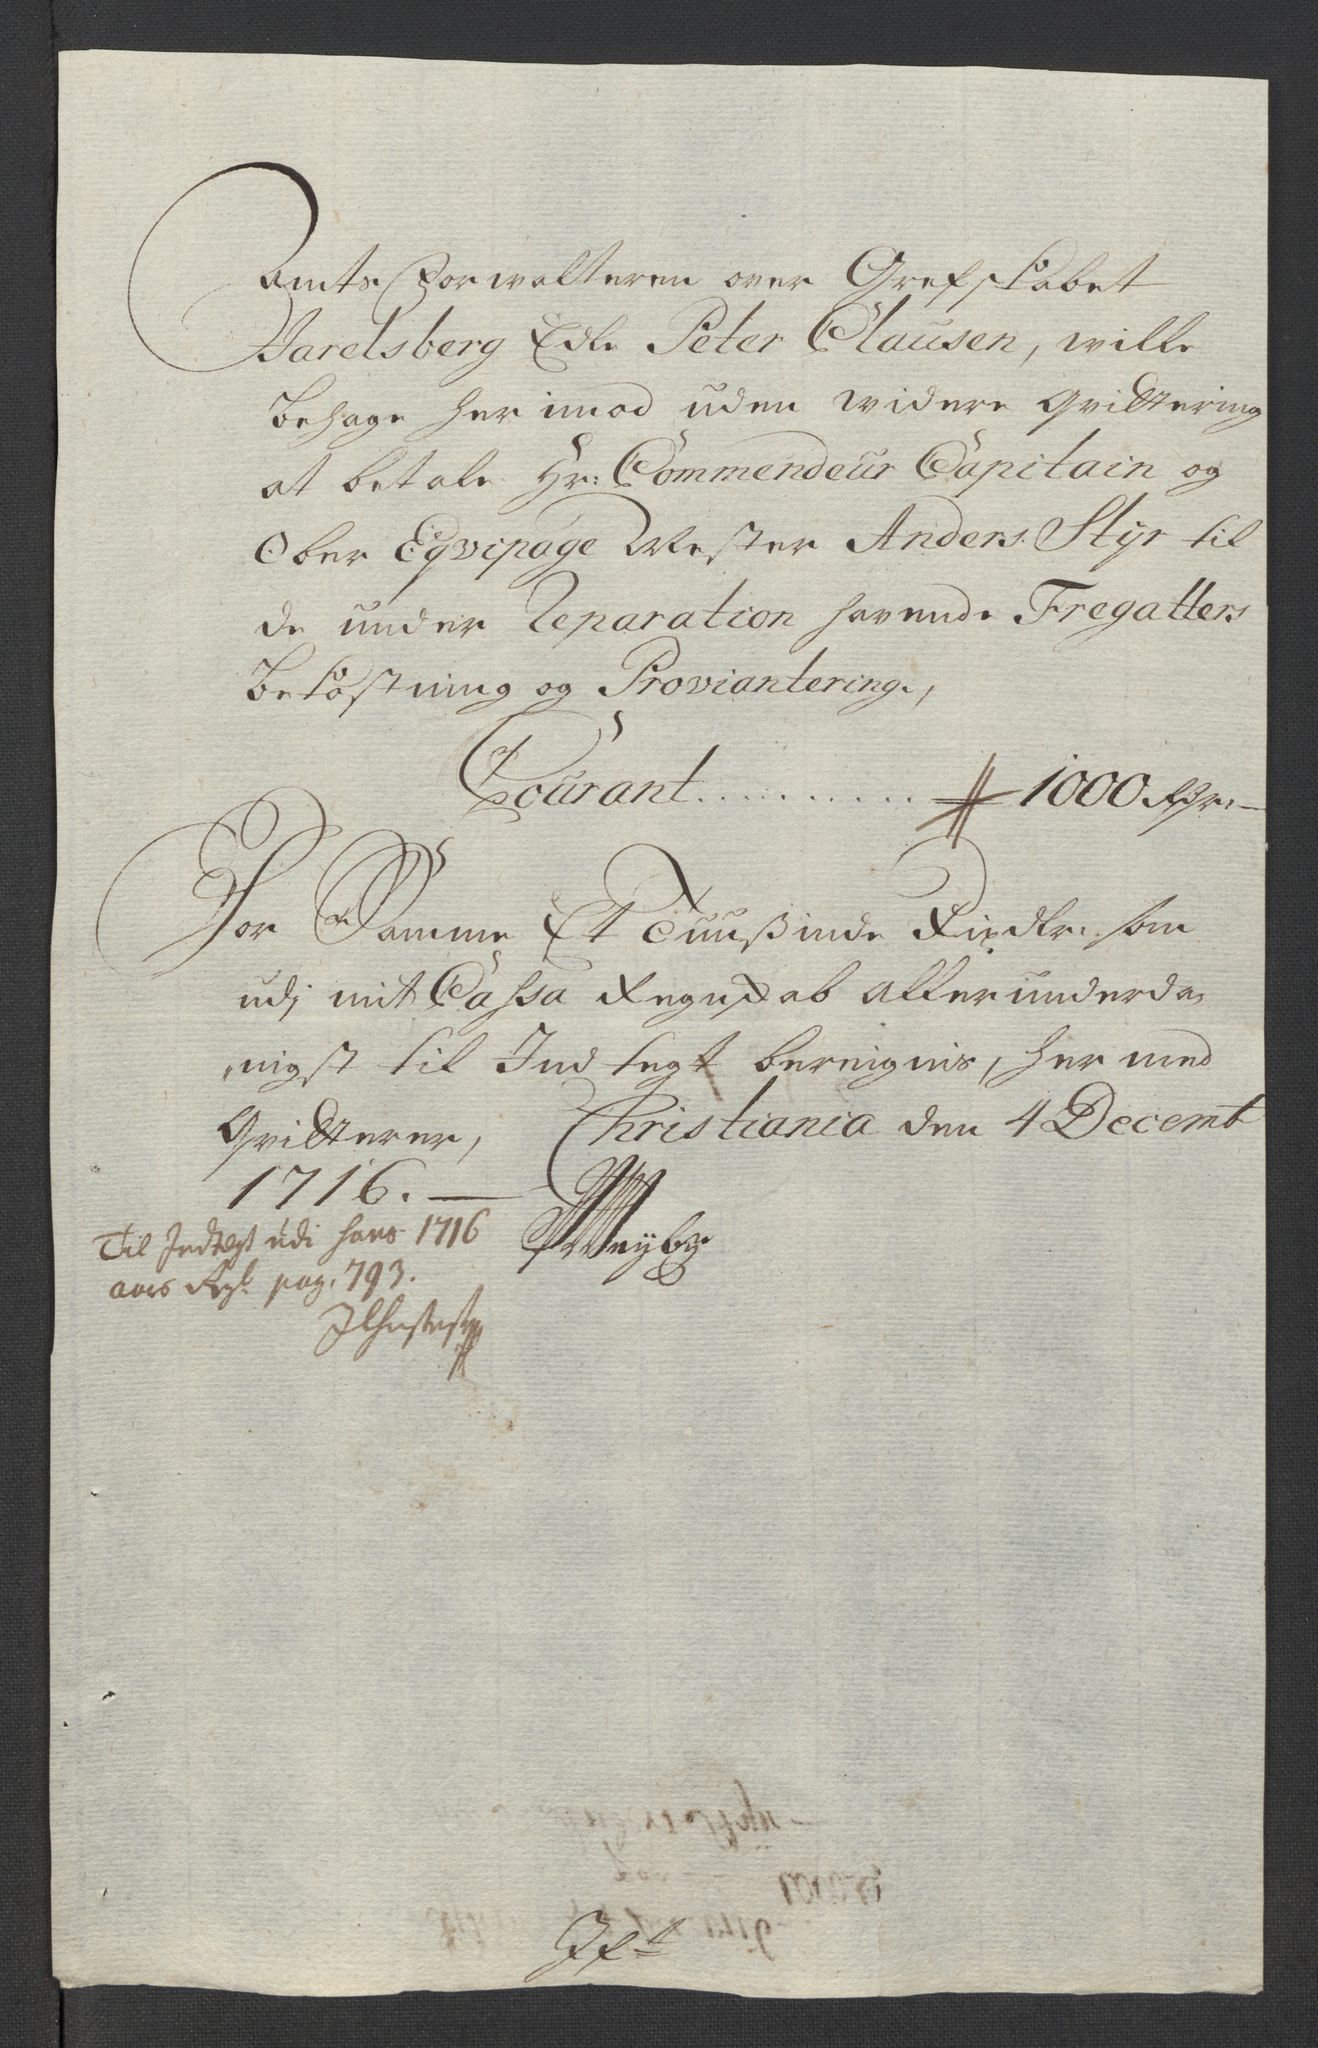 Amts Forwalteren over Grefskabet
Jarelsberg Edle Peter Clausen, wille
behage her imod uden widere Qvittering
at betale Hr: Commendeur Capitain og
Ober Eqvipage Mester Anders Styr til
de under Reparation havende Fregatters
bekostning og Proviantering,
Courant .......... 1000 Rdr:
For Samme Et Tuusinde Rixdlr. som
udj mit Cassa Regnskab allerunderda,
nigst til Indtegt beregnis, her med
Qvitterer, Christiania den 4 Decemb
1716.
Til Indtegt udi hans 1716
aars Regl. pag. 793.